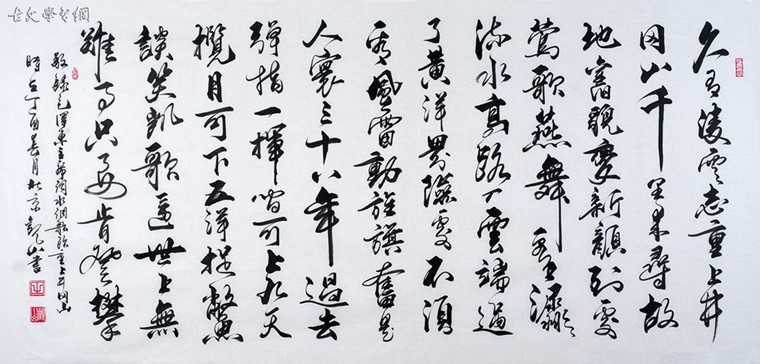 古文學習網
久有凌雲志重上井
岡山千里来尋故
地舊貌變新顔到處
鶯歌燕舞更有潺潺
流水高路入雲端過
了黄洋界險處不須
看風雷動旌旗奮是
人寰三十八年過去
彈指一揮間可上九天
攬月可下五洋捉鱉
談笑凱歌還世上無
難事只要肯登攀
敬錄毛澤東主席詞水調歌頭重上井岡山
時在丁酉春月北京觀山書